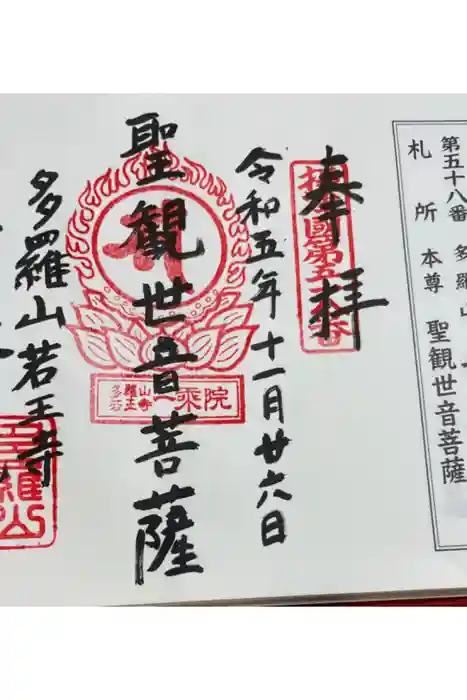 第五十八番 多羅山
札所本尊 聖観世音菩薩
奉拝
摂国第五
番
令和五年十一月廿六日
聖観世音菩薩
多羅山
若王寺
一乗院
多羅山若王寺
羅山